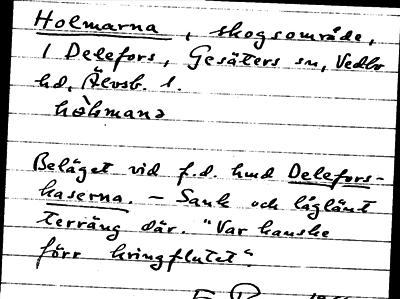 Holmarna, skogsområde,
i Delefors, Gesäters sn, Vedbo
hd, Älvsb. l.
Beläget vid f.d. hmd Delefors-
kaserna. - Sank och låglänt
terräng där. "Var kanske
förr kringflutet".